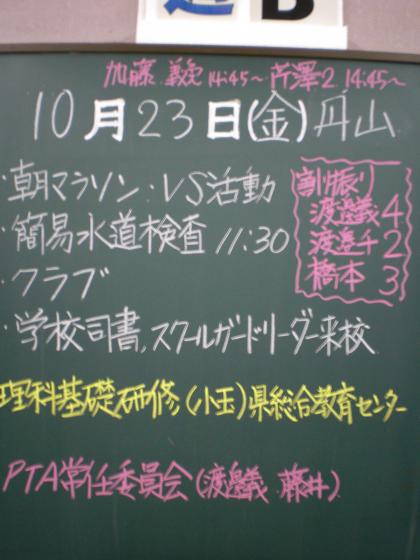 B
加藤義 14:45～ 芹澤2 14:45～
10月23日(金)丹山
・朝マラソン：VS活動
・簡易水道検査 11:30
・クラブ
・学校司書、スクールガードリーダー来校
割振り
渡邊義 4
渡邊千 2
橋本 3
理科基礎研修(小玉)県総合教育センター
PTA常任委員会(渡邊義 藤井)